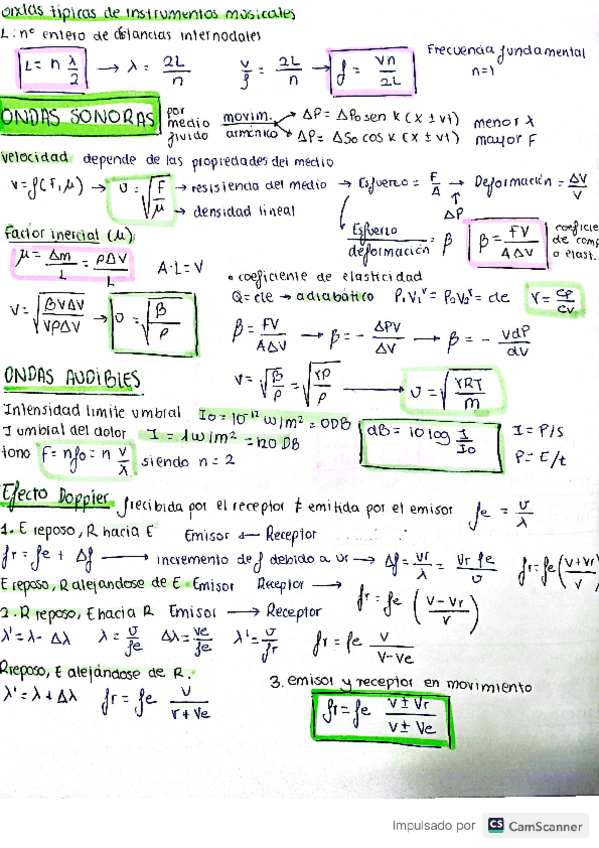 típicas de instrumentos musicales
L: nº entero de distancias internodales
L = n λ/2 → λ = 2L/n   v/f = 2L/n → f = vn/2L   Frecuencia fundamental n=1
ONDAS SONORAS por medio fluido movim. armónico → ΔP = ΔPo sen k (x ± vt) menor λ
→ ΔP = ΔSo cos k (x ± vt) mayor F
Velocidad depende de las propiedades del medio
v = f(F, μ) → υ = √(F/μ) → resistencia del medio → Esfuerzo = F/A → Deformación = ΔV/V
→ densidad lineal   ↑ ΔP
Factor inercial (μ)   Esfuerzo/deformación = β   β = FV/AΔV coeficie de comp o elast.
μ = Δm/L = ρΔV/L   A·L = V   • coeficiente de elasticidad
Q = cte → adiabático P₁V₁^γ = P₂V₂^γ = cte   γ = Cp/Cv
V = √(βVΔV/VρΔV) → υ = √(β/ρ)   β = FV/AΔV → β = - ΔPV/ΔV → β = - VdP/dV
ONDAS AUDIBLES   V = √(β/ρ) = √(γP/ρ) → υ = √(γRT/m)
Intensidad limite umbral Io = 10⁻¹² w/m² = 0DB
I umbral del dolor I = 1w/m² = 120 DB   dB = 10 log I/Io   I = P/S
tono f = nfo = n v/λ siendo n = 2   P = E/t
Efecto Doppler f recibida por el receptor ≠ emitida por el emisor fe = υ/λ
1. E reposo, R hacia E   Emisor ← Receptor
fr = fe + Δf → incremento de f debido a vr → Δf = vr/λ = vr fe/υ   fr = fe (v+vr/v)
E reposo, R alejandose de E Emisor Receptor →   fr = fe (v-vr/v)
2. R reposo, E hacia R   Emisor → Receptor
λ' = λ - Δλ   λ = υ/fe   Δλ = ve/fe   λ' = υ/fr   fr = fe v/v-ve
R reposo, E alejándose de R.
λ' = λ + Δλ   fr = fe v/v+ve   3. emisor y receptor en movimiento
fr = fe v±vr/v±ve
Impulsado por CS CamScanner